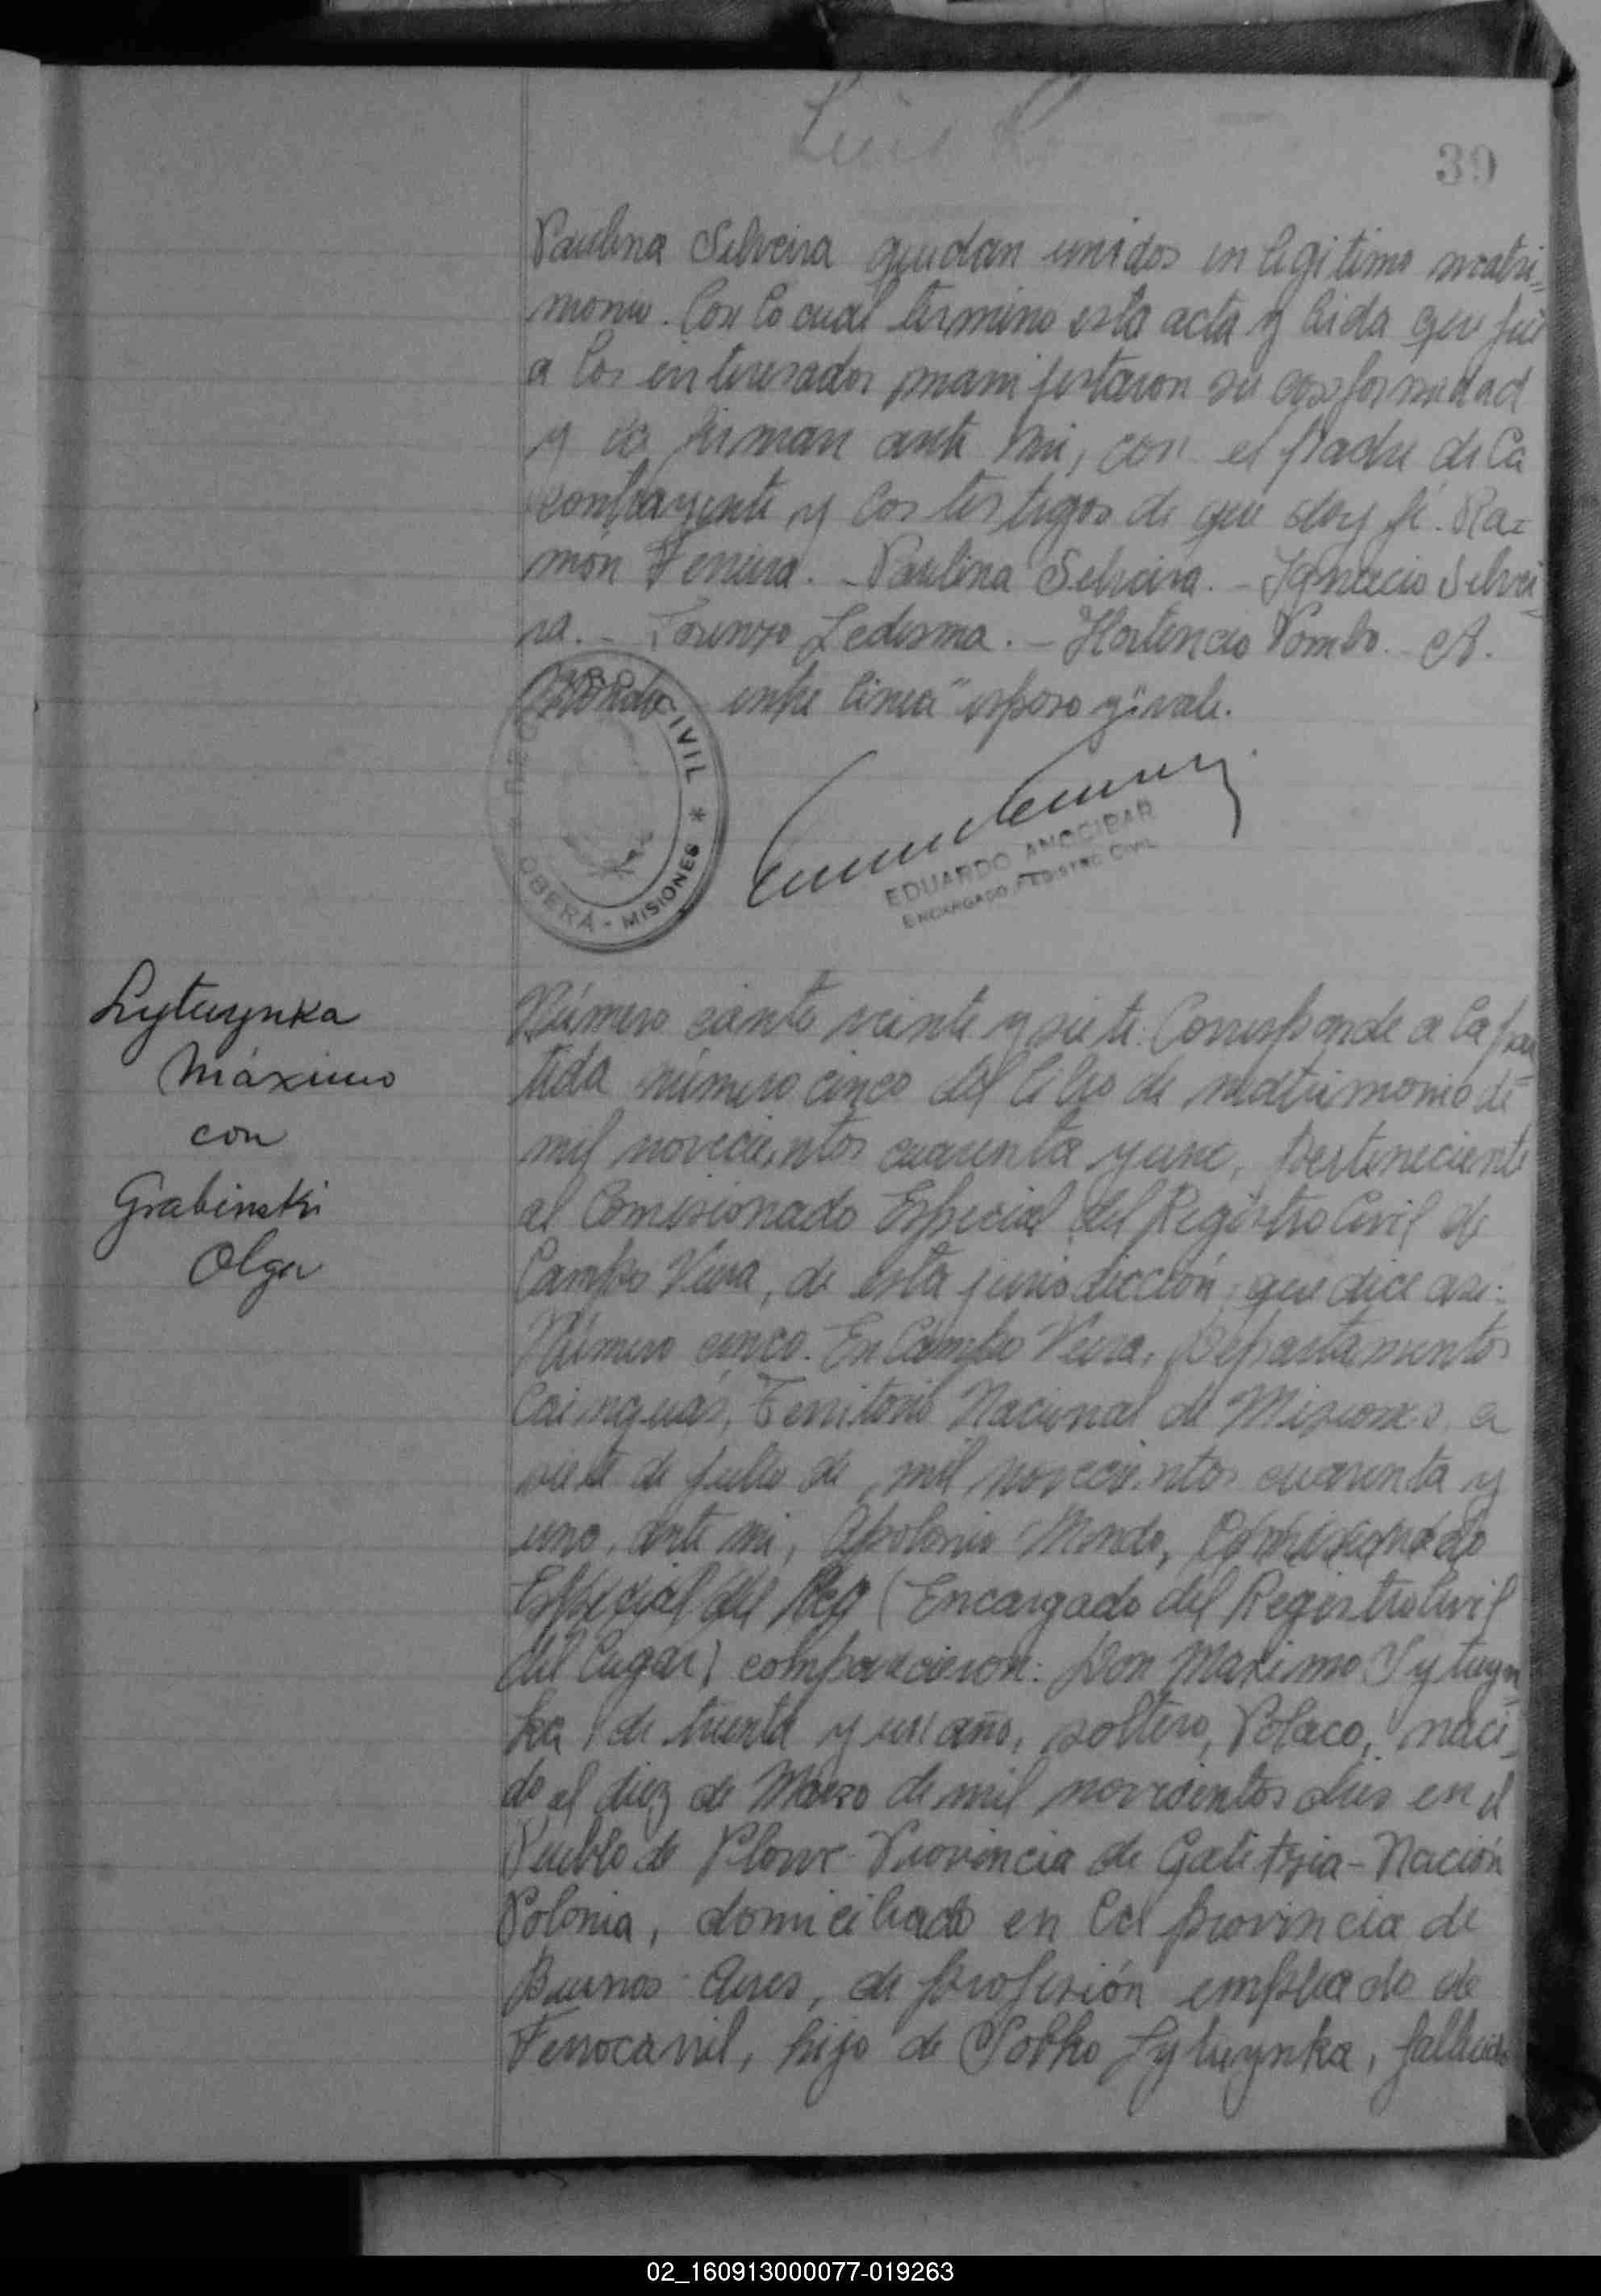 39
Paulina Silveira quedan unidos en legitimo matri=
monio. Con lo cual termino esta acta y leida que fué
a los interesados manifestaron su conformidad
y la firman ante mi, con el padre de la
contrayente y los testigos de que doy fé. Ra=
món Ferreira. - Paulina Silveira. - Ignacio Silvei=
ra. - Lorenzo Ledesma. - Hortencio Pombo. - A.
Mondo - entre linea "esposo y" vale.
REGISTRO CIVIL * OBERÁ - MISIONES *
EDUARDO ANOCIBAR
ENCARGADO REGISTRO CIVIL
Lytuynka
Máximo
con
Grabinski
Olga
Número ciento veinte y siete. Corresponde a la par=
tida número cinco del libro de matrimonio de
mil novecientos cuarenta y uno, perteneciente
al Comisionado Especial del Registro Civil de
Campo Viera, de esta jurisdicción, que dice asi:
Número cinco. En Campo Viera, Departamento
Cainguás, Territorio Nacional de Misiones, a
siete de Julio de mil novecientos cuarenta y
uno, ante mi, Apolonio Mondo, Comisionado
Especial del Reg (Encargado del Registro Civil
del Lugar) comparecieron: Don Maximo Lytuyn=
ka, de treinta y un año, soltero, Polaco, naci=
do el diez de Marzo de mil novecientos diez en el
Pueblo de Provincia de Galitzia - Nación
Polonia, domiciliado en la provincia de
Buenos Aires, de profesión empleado de
Ferrocarril, hijo de Lytuynka, fallecido
02_160913000077-019263